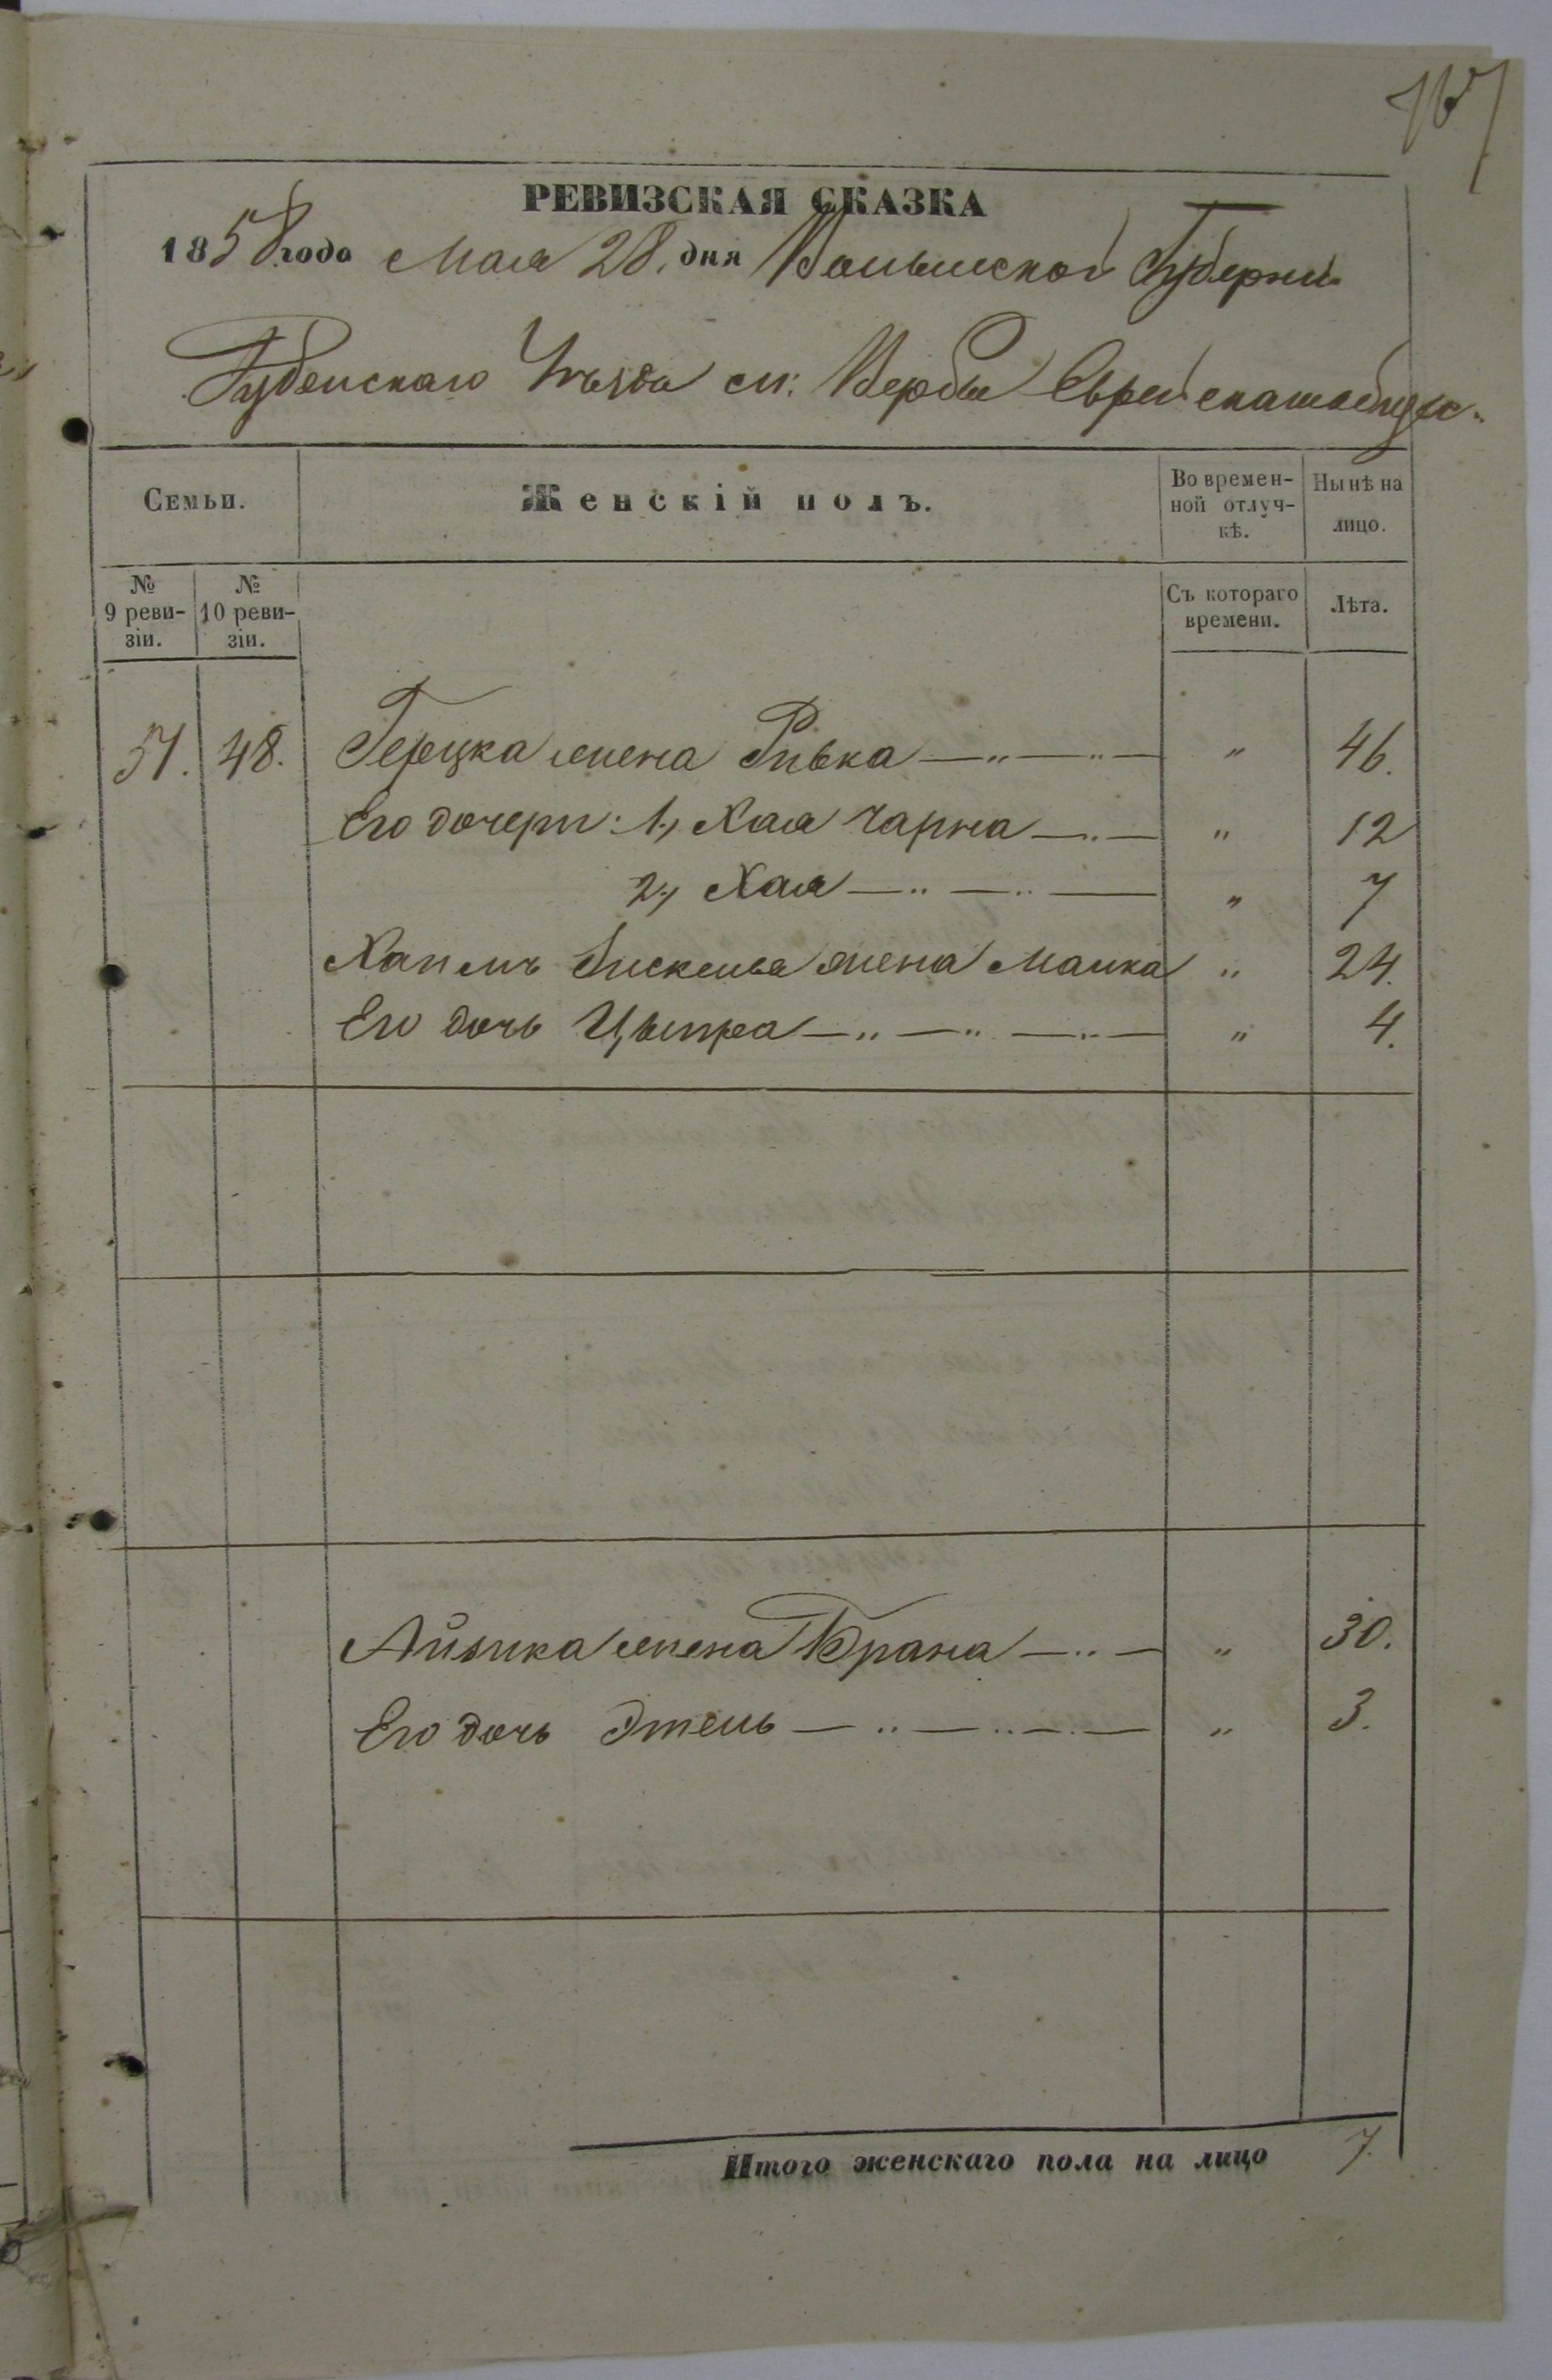 167
РЕВИЗСКАЯ СКАЗКА
1858 года Мая 28. дня Волынской Губерни
Дубенскаго Уѣзда м: Вербы Еврейскаго
Семьи.
Женскій полъ.
Во времен-
ной отлуч-
кѣ.
Нынѣ на
лицо.
№
9 реви-
зіи.
№
10 реви-
зіи.
Съ котораго
времени.
Лѣта.
51. 48. Герцка жена Ривка — „ — „ — „ 46.
Его дочери: 1, Хая Чарна — „ — „ 12
2, Хая — „ — „ — „ 7
жена Малка „ 24.
Его дочь Ципра — „ — „ — „ — „ 4.
Айзика жена Брана — „ — „ 30.
Его дочь Этель — „ — „ — „ — „ 3.
Итого женскаго пола на лицо 7.